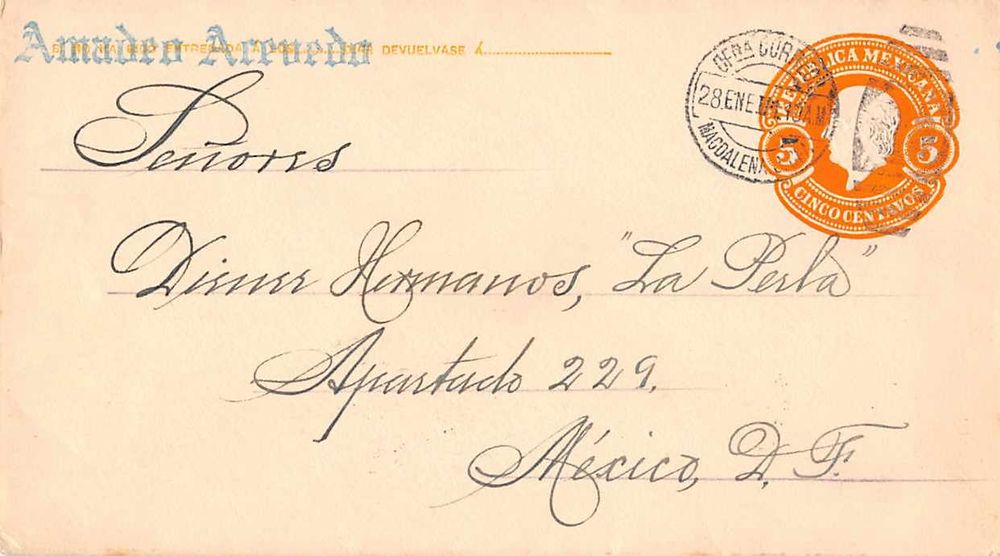 Amadeo Acevedo
ENTREGADA A LOS DIAS DEVUELVASE Á
OFNA CORREOS
28 ENE
MAGDALENA
REPUBLICA MEXICANA
5 5
CINCO CENTAVOS
Señores
Diener Hermanos, "La Perla"
Apartado 229.
México, D. F.